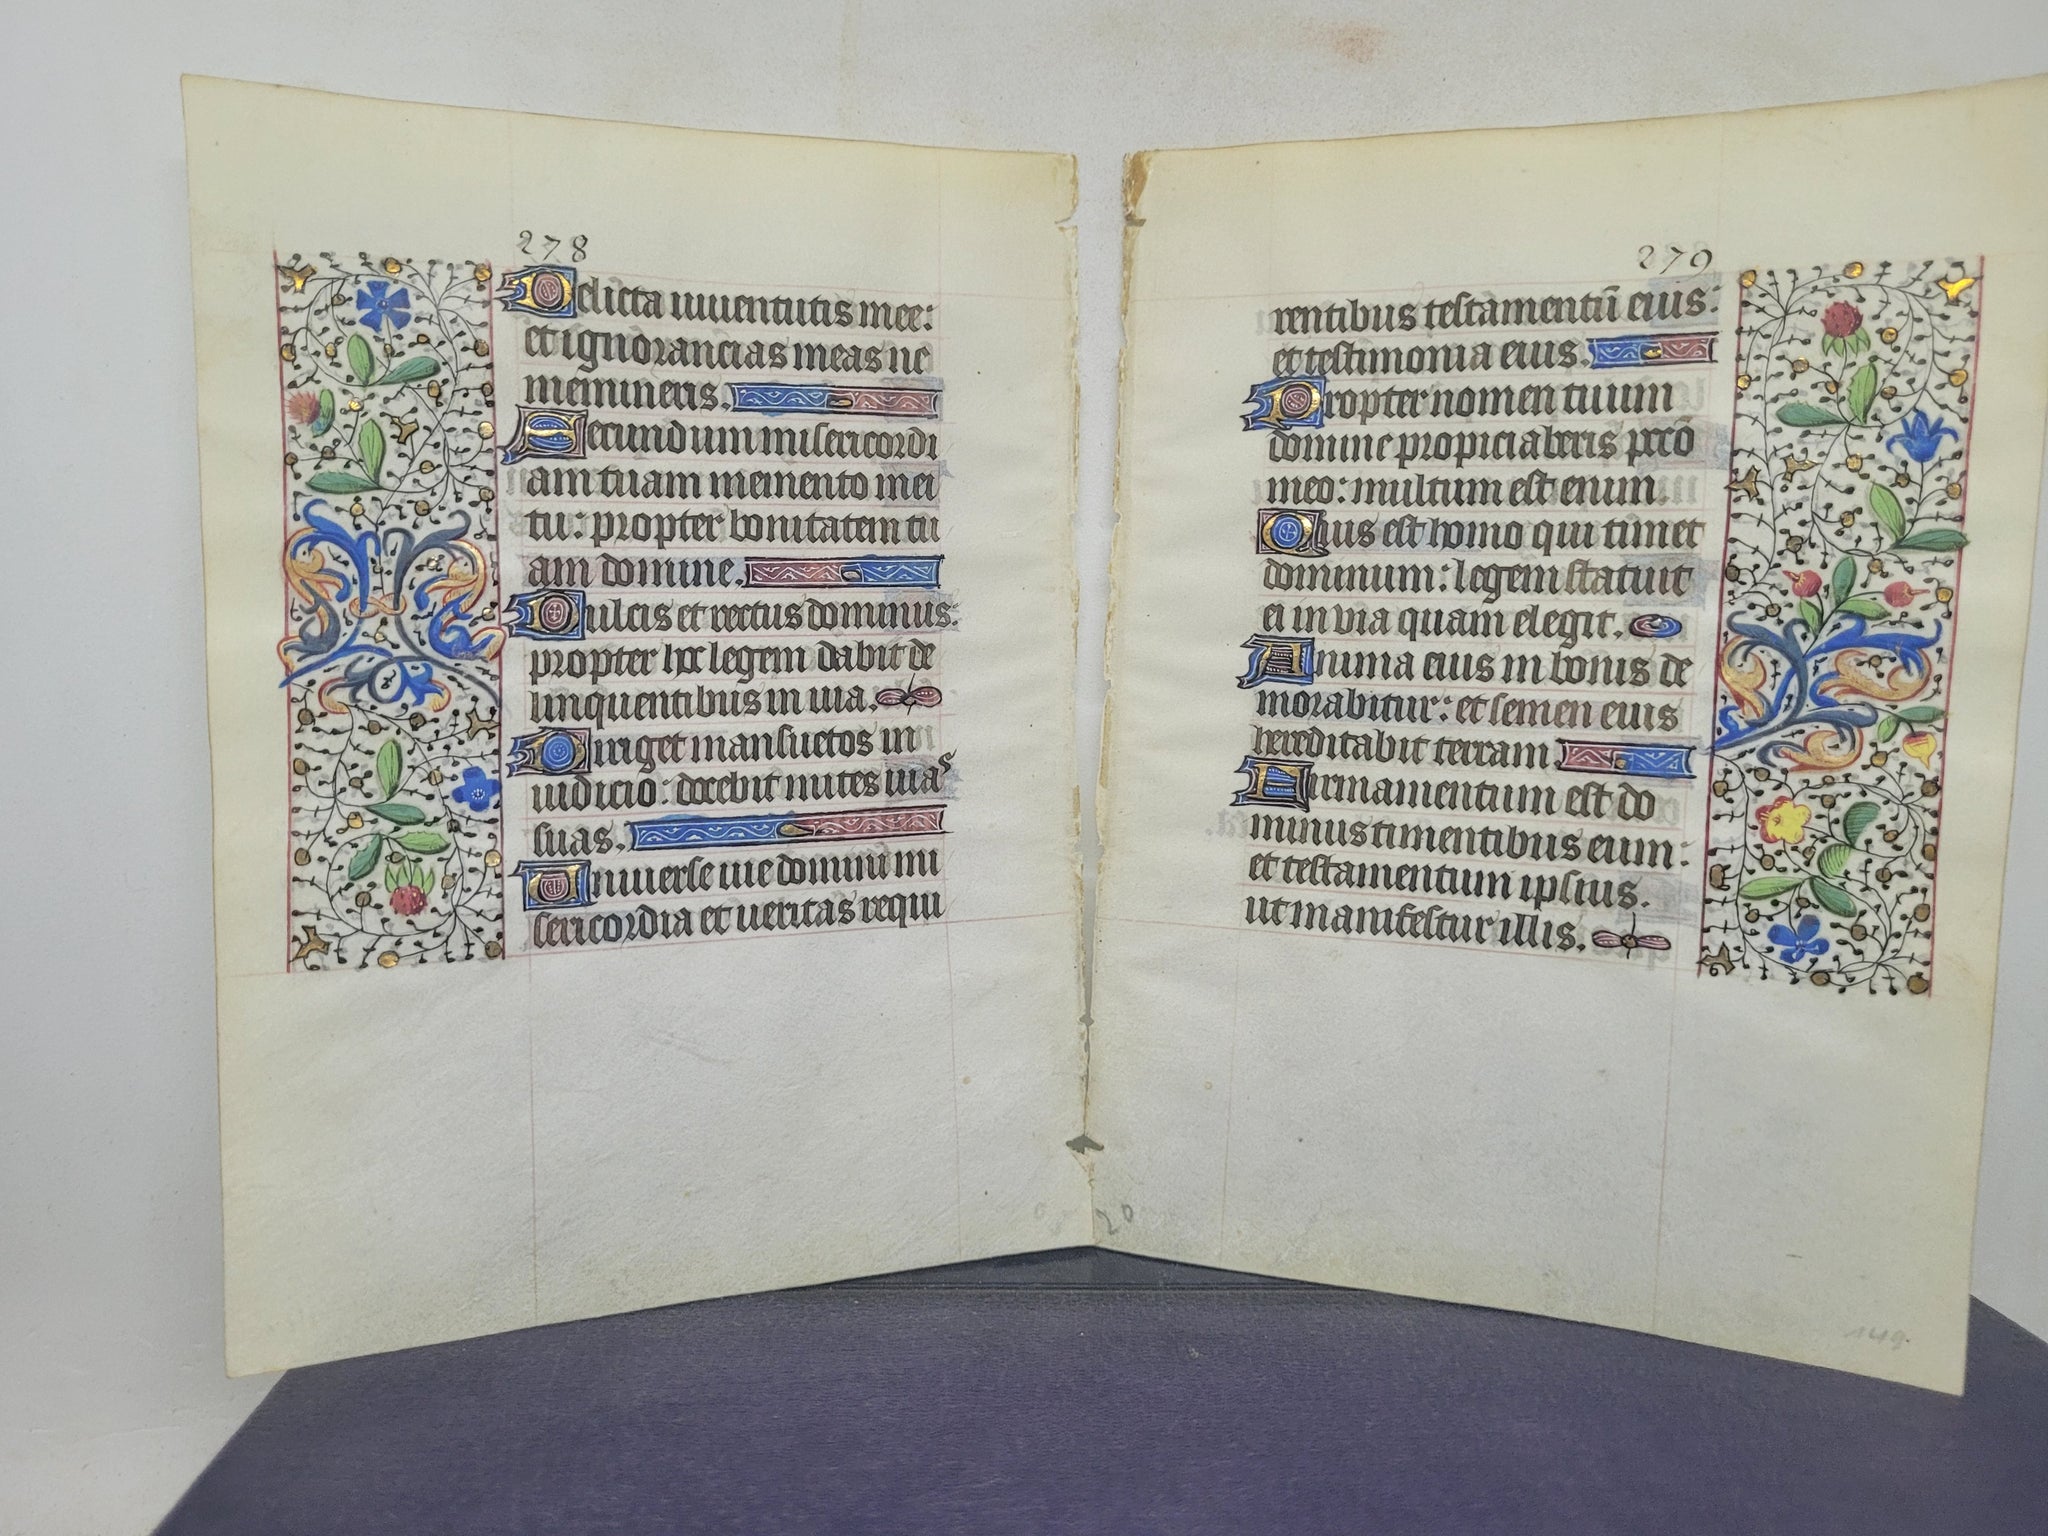 278
Delicta iuventutis mee:
et ignorancias meas ne
memineris.
Secundum misericordi
am tuam memento mei
tu: propter bonitatem tu
am domine.
Dulcis et rectus dominus:
propter hoc legem dabit de
linquentibus in uia.
Diriget mansuetos in
iudicio: docebit mites uias
suas.
Universe uie domini mi
sericordia et ueritas requi
279
rentibus testamentū eius:
et testimonia eius.
Propter nomen tuum
domine propiciaberis pccō
meo: multum est enim.
Quis est homo qui timet
dominum: legem statuit
ei in via quam elegit.
Anima eius in bonis de
morabitur: et semen eius
hereditabit terram.
Firmamentum est do
minus timentibus eum:
et testamentum ipsius.
ut manifestur illis.
20
149.